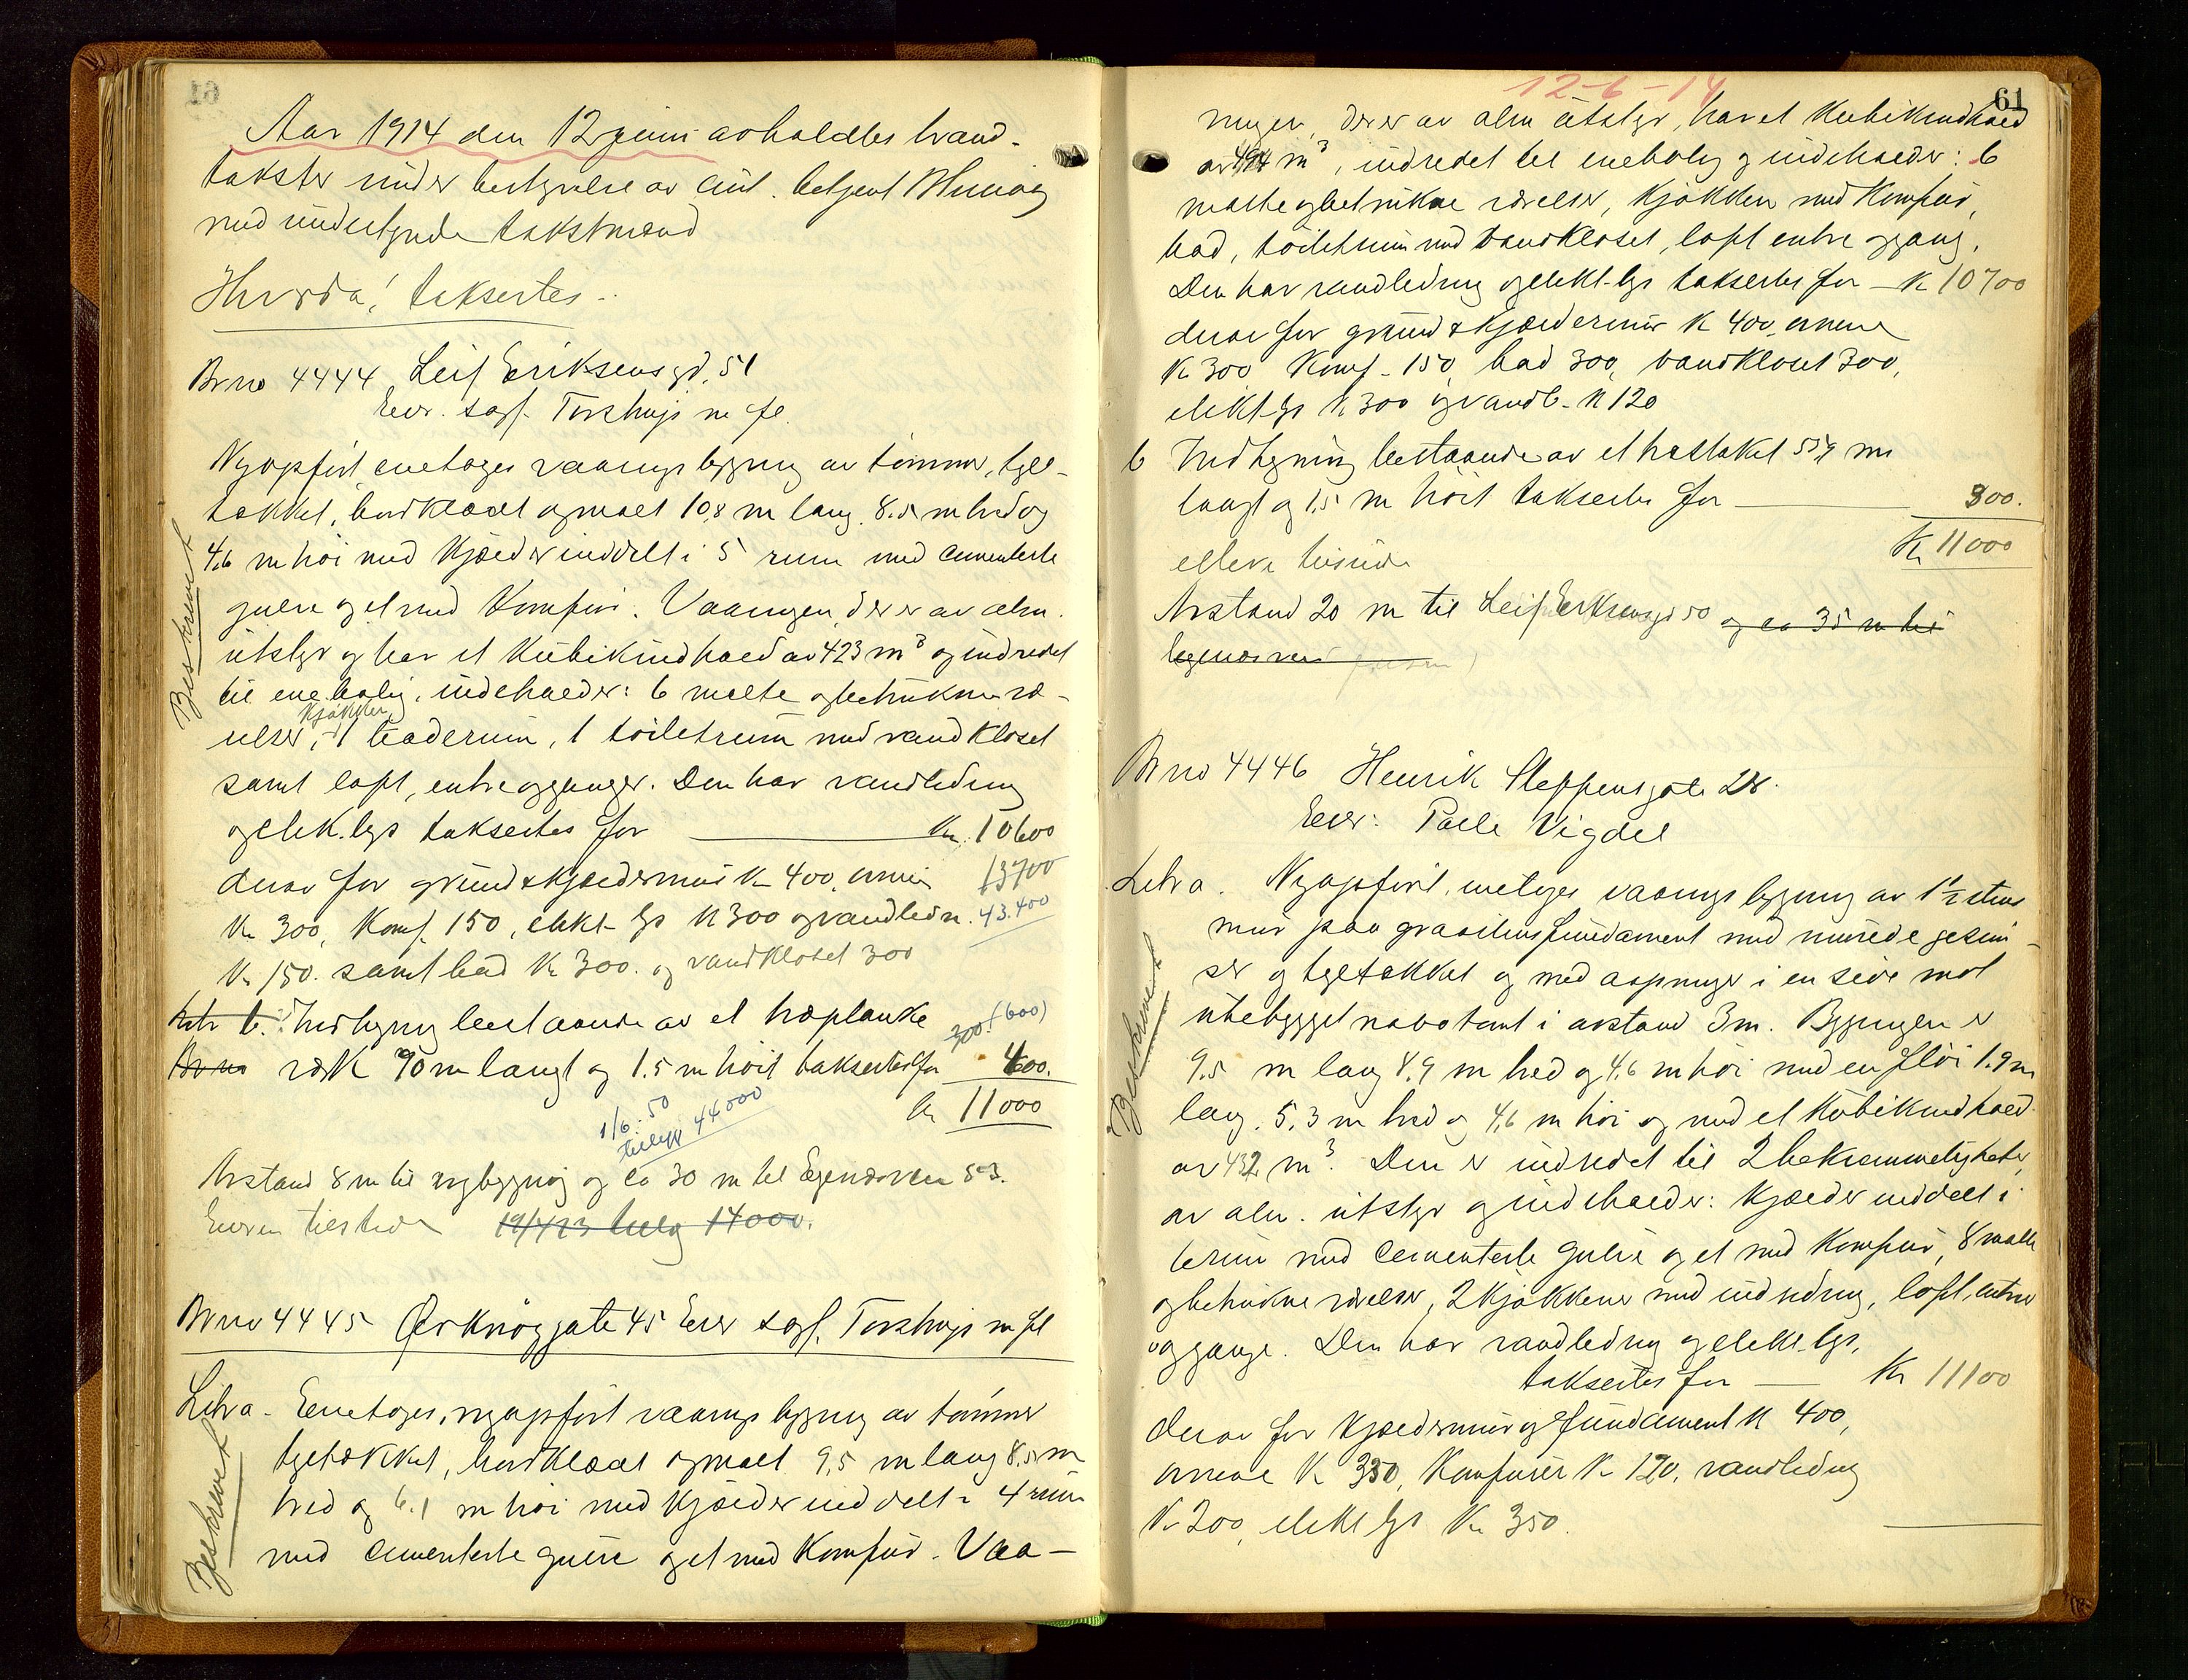 Aar 1914 den 12 juni avholdtes brand-
takster under bestyrelse av amt. betjent
med undertegnede takstmænd
Hvorda! taksertes..
Br no 4444 Leif Eriksensgd. 51
Eier. sagf. Torshugs m fl.
Nyopført, enetages vaaningsbygning av tømmer, tegl-
tækket, bordklædt og malt 10,8 m lang, 8.5 m bred og
4,6 m høi med kjælder inddelt i 5 rum med cementerte
gulve og et med komfur. Vaaningen, der er av alm.
utstyr og har et kubikindhold av 423 m³ og indredet
til enebolig, indeholder: 6 malte og betrukne væ-
relser, kjøkken, 1 baderum, 1 toiletrum med vandkloset
samt loft, entre og ganger. Den har vandledning
og elek. lys taksertes for Kr. 10600
derav for grund & kjældermur Kr 400, ovner 13700
Kr 300, Komf. 150, elekt. lys K 300 og vandledn. 43.400
Kr 150. samt bad Kr 300. og vandkloset 300
Litr b. Indhegning bestaaende av et træplanke (600)
Br no værk 90 m langt og 1.5 m høit taksertes for 300. 400.
Kr 11000
1/6.50
tillegg 44000
Avstand 8 m til nybygning og ca 30 m til Egenæsveien 53.
Eieren tilstede 19/4 23 tillæg 14000.
Br no 4445 Ørknøygate 45 Eier sagf. Torshugs m fl
Litr a - Enetages, nyopført vaaningsbygning av tømmer
Bestemt
teglt­ækket, bordklædt og malt 9,5 m lang 8,5 m
bred og 6.1 m høi med kjælder inddelt i 4 rum
med cementerte gulve og et med Komfur. Vaa-
12-6-14
61
ningen, der er av alm utstyr, har et kubikindhold
av 494 m³, indredet til enebolig og indeholder: 6
malte og betrukne værelser, kjøkken med komfur,
bad, toiletrum med vandkloset, loft entre og gang.
Den har vandledning og elekt. lys taksertes for – K 10700
derav for grund & kjældermur K 400, ovnene
Kr 300 Komf - 150, bad 300, vandkloset 300,
elekt. lys K 300 og vandl. K 120
b Indhegning bestaaende av et træstaket 55,9 m
langt og 1,5 m høit taksertes for 300.
Kr 11000
elleve tusinde
Avstand 20 m til Leif Eriksensgd 50 og ca 35 m til
Egenæsvei
Br no 4446 Henrik Steffensgate 28.
Eier: Palle Vigdel
Litr a. Nyopført, enetages vaaningsbygning av 1½ stens
mur paa graastensfundament med murede gesim-
ser og tegltækket og med aapninger i en side mot
ubebygget nabotomt i avstand 3 m. Bygningen er
9.5 m lang 8.9 m bred og 4,6 m høi med en fløi 1.9 m
lang, 5,3 m bred og 4,6 m høi og med et kubikindhold
av 432 m³. Den er indredet til 2 bekvemmeligheter
av alm. utstyr og indeholder: kjælder inddelt i
6 rum med cementerte gulve og et med komfur, 8 malte
og betrukne værelser, 2 kjøkkener med indredning, loft, entre
og gange. Den har vandledning og elekt. lys,
taksertes for – Kr 11100
derav for kjældermur og fundament K 400,
ovnene K 350, Komfurer Kr 120, vandledning
Kr 200, elekt lys Kr 350.